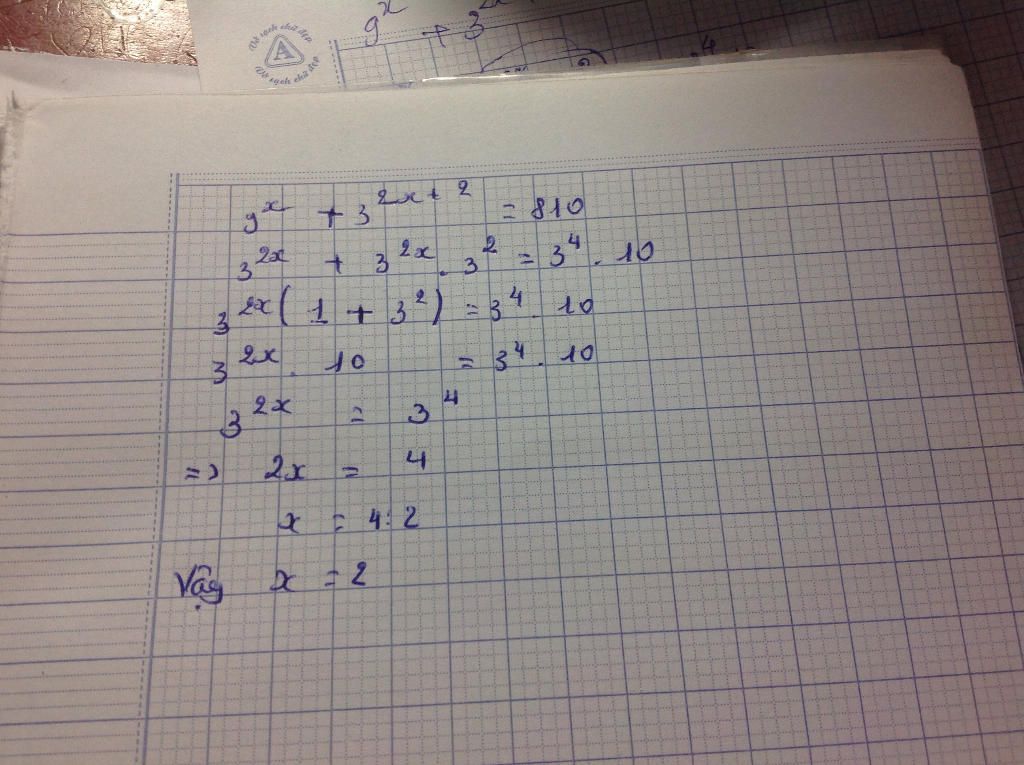 Vở sạch chữ đẹp
A
Vở sạch chữ đẹp
9^x + 3^2x
4
9^x + 3^{2x+2} = 810
3^{2x} + 3^{2x} . 3^2 = 3^4 . 10
3^{2x} ( 1 + 3^2 ) = 3^4 . 10
3^{2x} . 10 = 3^4 . 10
3^{2x} = 3^4
=> 2x = 4
x = 4 : 2
Vậy x = 2